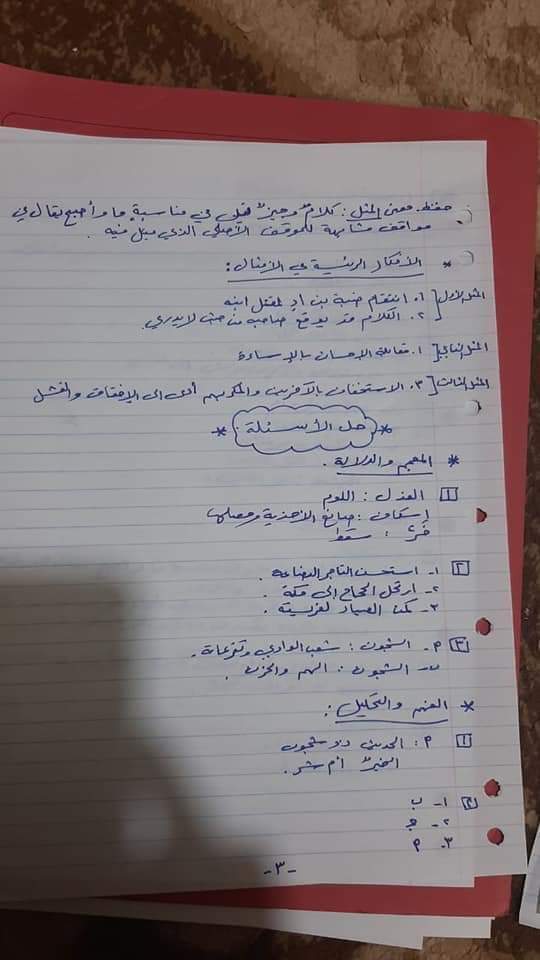 حفظ. معنى المثل: كلامٌ وجيزٌ قيل في مناسبةٍ ما وأصبح يقال في
مواقف مشابهة للموقف الأصلي الذي قيل فيه.
* الأفكار الرئيسية في الأمثال:
المثل الأول [ ١. انتقام ضبة بن أدٍ لمقتل ابنه
٢. الكلام قد يوقع صاحبه من حيث لا يدري.
المثل الثاني [ ١. مقابلة الإحسان بالإساءة
المثل الثالث [ ٣. الاستخفاف بالآخرين والمكر بهم أدى إلى الإخفاق والفشل
* حل الأسئلة *
* المعجم والدلالة.
١ العذل: اللوم
إسكاف: صانع الأحذية ومصلحها
خرّ: سقط
٢ ١- استحسن التاجر البضاعة.
٢- ارتحل الحجاج إلى مكة.
٣- كمن الصياد لفريسته.
٣ ٩- الشجون: شعب الوادي وتفرعاته.
ب- الشجون: الهم والحزن.
* الفهم والتحليل:
١ ٩: الحديث ذو شجون
الخيرٌ أم شر.
٢ ١- ب
٢- ج
٣. ٩
-٣-